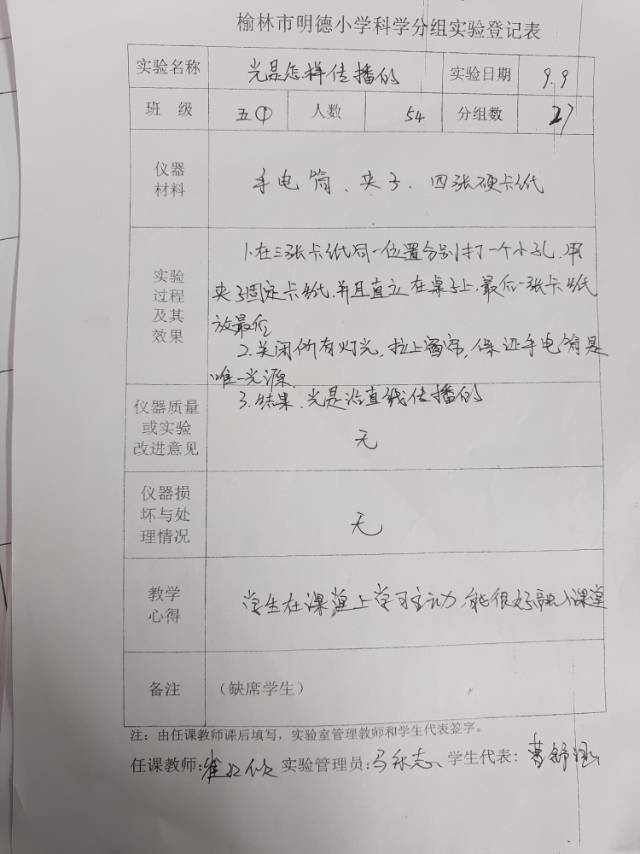 榆林市明德小学科学分组实验登记表
实验名称 光是怎样传播的 实验日期 9.9
班 级 五① 人数 54 分组数 27
仪器材料 手电筒、夹子、四张硬卡纸
实验过程及其效果
1.在三张卡纸同一位置分别打一个小孔.用
夹子固定卡纸.并且直立在桌子上,最后一张卡纸
放最后
2.关闭所有灯光,拉上窗帘,保证手电筒是
唯一光源.
3.结果.光是沿直线传播的
仪器质量或实验改进意见 无
仪器损坏与处理情况 无
教学心得 学生在课堂上学习主动,能很好融入课堂
备注 (缺席学生)
注:由任课教师课后填写,实验室管理教师和学生代表签字。
任课教师: 实验管理员: 学生代表: